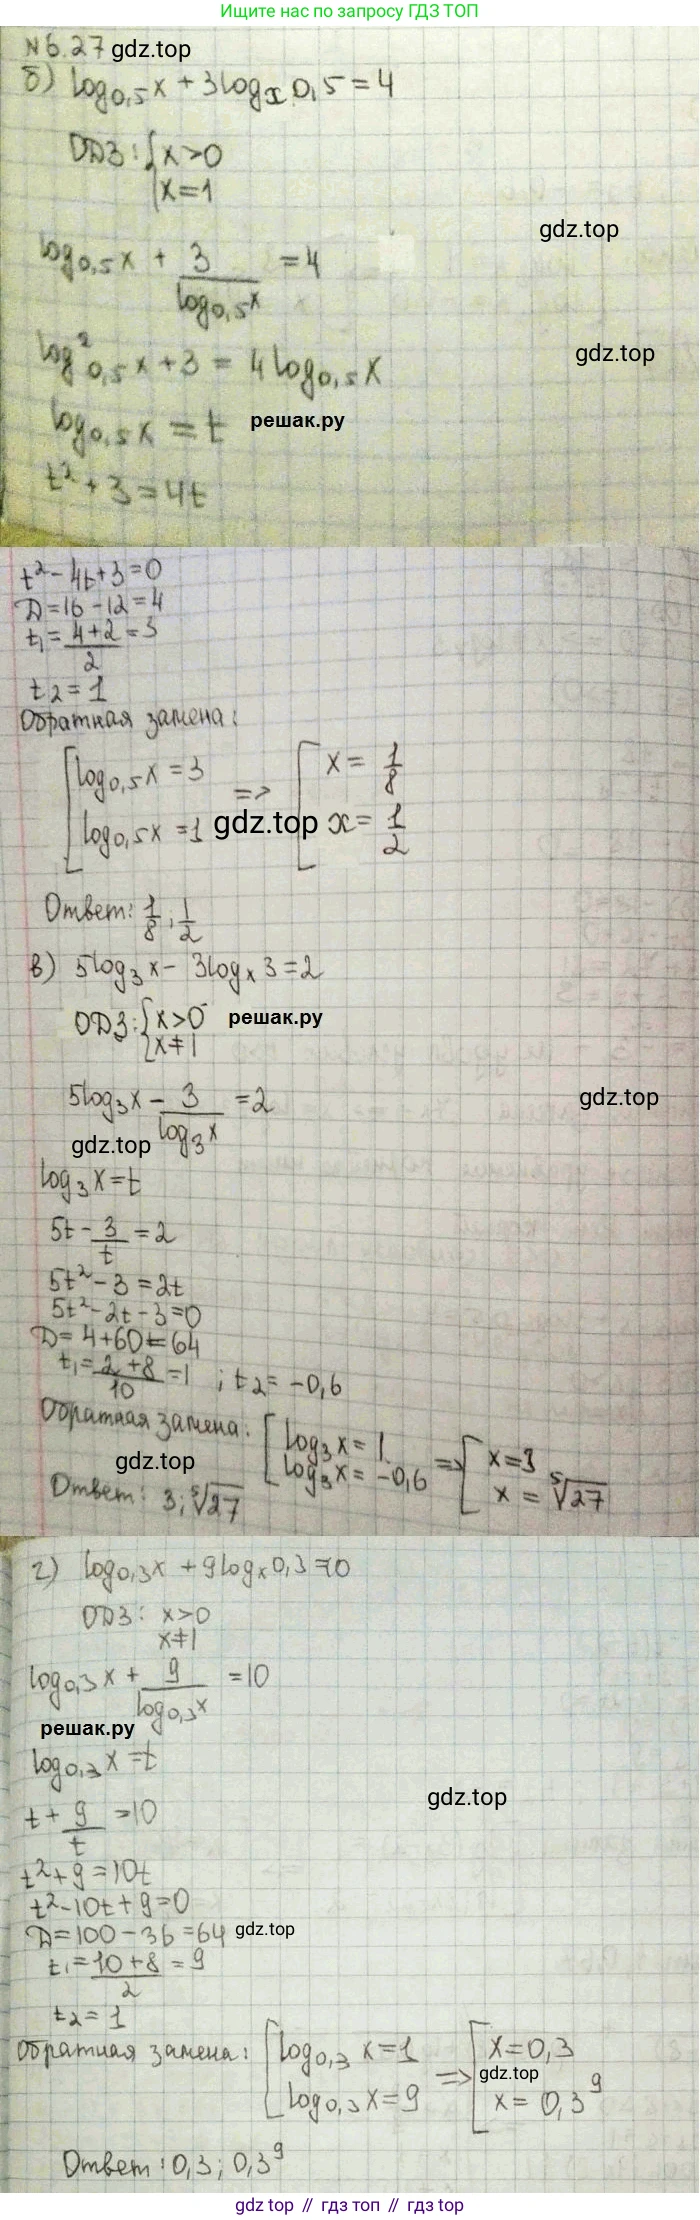 Ищите нас по запросу ГДЗ ТОП
N 6.27 gdz.top
б) log₀,₅x + 3logₓ0,5 = 4
ОДЗ: { x>0
x=1
gdz.top
log₀,₅x + 3/log₀,₅x = 4
gdz.top
log²₀,₅x + 3 = 4log₀,₅x
log₀,₅x = t решак.ру
t² + 3 = 4t
t² - 4t + 3 = 0
D = 16 - 12 = 4
t₁ = (4+2)/2 = 3
t₂ = 1
Обратная замена:
[ log₀,₅x = 3 => [ x = 1/8
log₀,₅x = 1 gdz.top x = 1/2
Ответ: 1/8; 1/2
в) 5log₃x - 3logₓ3 = 2
ОДЗ: { x>0 решак.ру
x≠1
5log₃x - 3/log₃x = 2 gdz.top
gdz.top
log₃x = t
5t - 3/t = 2
5t² - 3 = 2t
5t² - 2t - 3 = 0
D = 4 + 60 = 64
t₁ = (2+8)/10 = 1 ; t₂ = -0,6
Обратная замена: [ log₃x = 1 => [ x = 3
gdz.top log₃x = -0,6 x = ⁵√27
Ответ: 3; ⁵√27
г) log₀,₃x + 9logₓ0,3 = 10
ОДЗ: x>0
x≠1
log₀,₃x + 9/log₀,₃x = 10
решак.ру
log₀,₃x = t
gdz.top
t + 9/t = 10
t² + 9 = 10t
t² - 10t + 9 = 0
D = 100 - 36 = 64 gdz.top
t₁ = (10+8)/2 = 9
t₂ = 1
Обратная замена: [ log₀,₃x = 1 => [ x = 0,3
gdz.top
log₀,₃x = 9 x = 0,3⁹
Ответ: 0,3; 0,3⁹
gdz top // гдз топ // gdz top